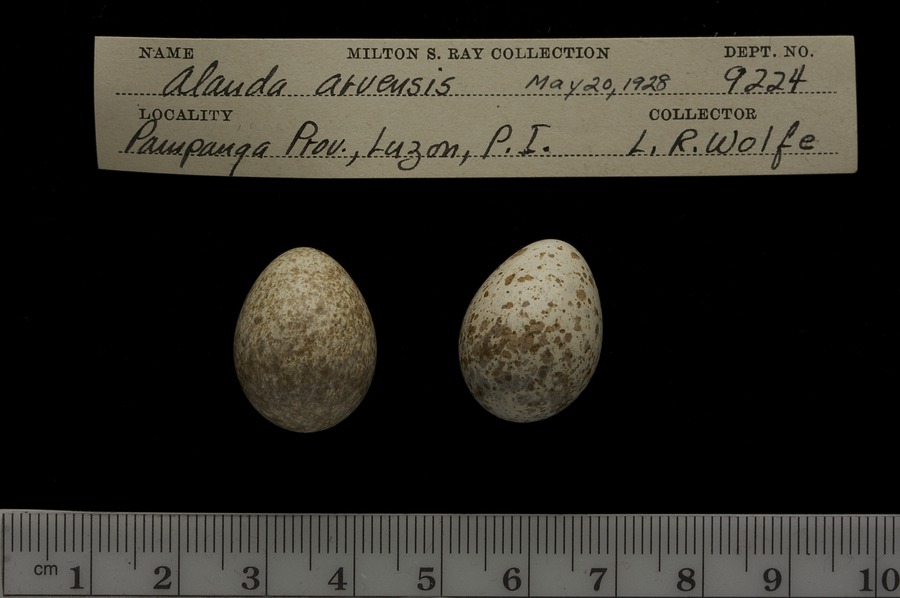 NAME MILTON S. RAY COLLECTION DEPT. NO.
Alauda arvensis May 20, 1928 9224
LOCALITY COLLECTOR
Pampanga Prov., Luzon, P. I. L. R. Wolfe
cm 1 2 3 4 5 6 7 8 9 10